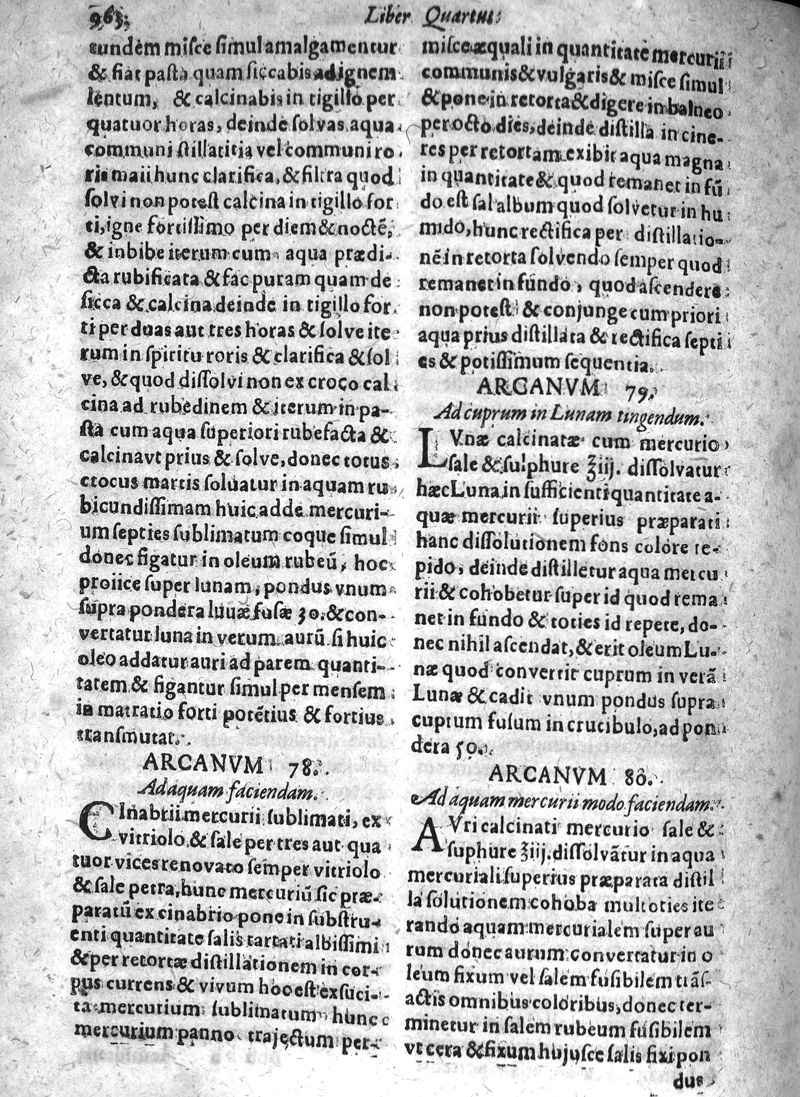 963.
Liber Quartus:
tundem misce simul amalgamentur
& fiat pasta quam siccabis ad ignem
lentum, & calcinabis in tigillo per
quatuor horas, deinde solvas aqua
communi stillatitia vel communi ro
ris maii hunc clarifica, & filtra quod
solvi non potest calcina in tigillo for
ti, igne fortissimo per diem & noctē,
& inbibe iterum cum aqua prædi-
cta rubificata & fac puram quam de
sicca & calcina deinde in tigillo for.
ti per duas aut tres horas & solve ite
rum in spiritu roris & clarifica & sol
ve, & quod dissolvi non ex croco cal
cina ad rubedinem & iterum in pa-
sta cum aqua superiori rubefacta &
calcina vt prius & solve, donec totus
ctocus martis soluatur in aquam ru
bicundissimam huic adde mercuri-
um septies sublimatum coque simul
donec figatur in oleum rubeū, hoc
proiice super lunam, pondus vnum
supra pondera luuæ fusæ 30. & con-
vertatur luna in verum aurū si huic
oleo addatur auri ad parem quanti-
tatem & figantur simul per mensem
in matratio forti potētius & fortius
transmutat.
ARCANVM 78.
Ad aquam faciendam.
CInabrii mercurii sublimati, ex
vitriolo, & sale per tres aut qua
tuor vices renovato semper vitriolo
& sale petra, hunc mercuriū sic præ-
paratū ex cinabrio pone in substru-
enti quantitate salis tartari albissimi
& per retortæ distillationem in cor-
pus currens & vivum hoc est exsuci-
ta mercurium sublimatum hunc
mercurium panno trajectum per-
misce æquali in quantitate mercurii
communis & vulgaris & misce simul
& pone in retorta & digere in balneo
per octo dies, deinde distilla in cine-
res per retortam exibit aqua magna
in quantitate & quod remanet in fū
do est sal album quod solvetur in hu
mido, hunc rectifica per distillatio-
nē in retorta solvendo semper quod
remanet in fundo, quod ascendere
non potest & conjunge cum priori
aqua prius distillata & rectifica septi
es & potissimum sequentia.
ARCANVM 79.
Ad cuprum in Lunam tingendum.
LVnæ calcinatæ cum mercurio
sale & sulphure ℥iij. dissolvatur
hæc Luna in sufficienti quantitate a-
quæ mercurii superius præparati
hanc dissolutionem fons colore te-
pido, deinde distilletur aqua mercu
rii & cohobetur super id quod rema
net in fundo & toties id repete, do-
nec nihil ascendat, & erit oleum Lu-
næ quod convertit cuprum in verā
Lunæ & cadit vnum pondus supra
cuptum fusum in crucibulo, ad pon
dera 50.
ARCANVM 80.
Ad aquam mercurii modo faciendam.
AVri calcinati mercurio sale &
suphure ℥iij. dissolvātur in aqua
mercuriali superius præparata distil
la solutionem cohoba multoties ite
rando aquam mercurialem super au
rum donec aurum convertatur in o
leum fixum vel salem fusibilem trās-
actis omnibus coloribus, donec ter-
minetur in salem rubeum fusibilem
vt cera & fixum hujusce salis fixi pon
dus